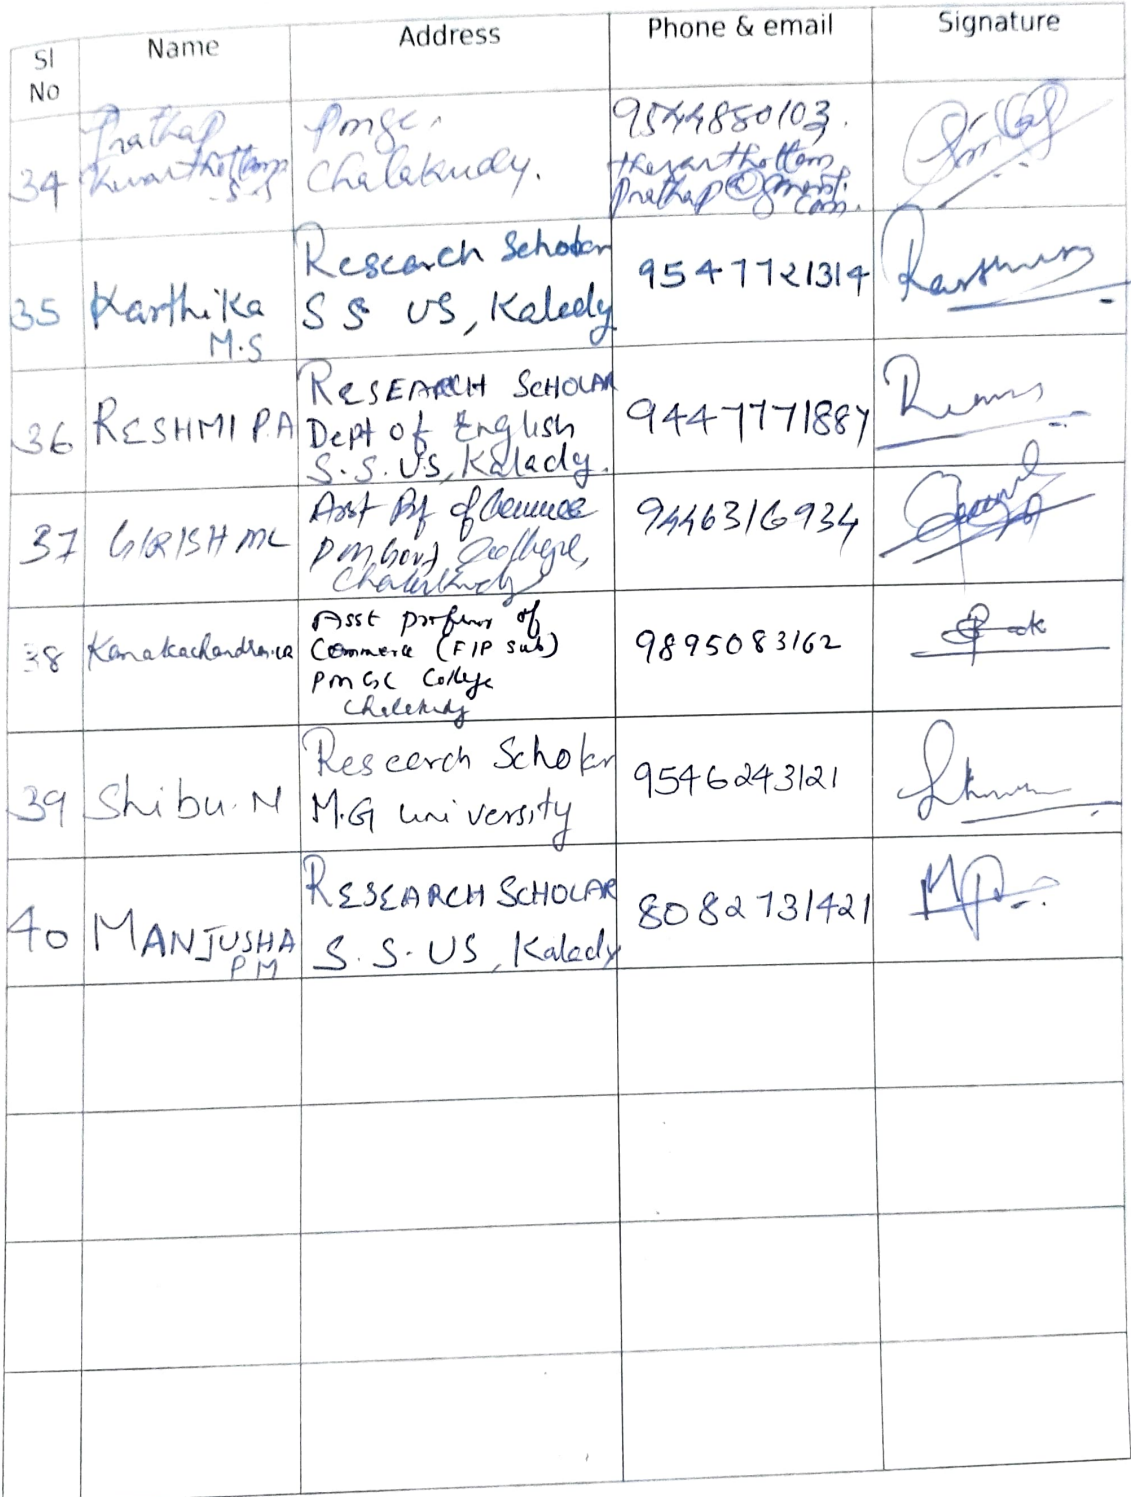 Sl No Name Address Phone & email Signature
34 Prathap S.S Pmgc, Chalakudy. 9544850103. Prathap@gmail.com.
35 Karthika M.S Research Scholar S S US, Kalady 9547721314
36 RESHMI P.A RESEARCH SCHOLAR Dept of English S.S.US, Kalady. 9447771887
37 GIRISH MC Asst Prof of Commerce PM Govt College, Chalakudy 9446316934
38 Asst professor of Commerce (FIP sub) PMGC College Chalakudy 9895083162
39 Shibu. N Research Scholar M.G university 9546243121
40 MANJUSHA PM RESEARCH SCHOLAR S.S.US, Kalady 8082731421